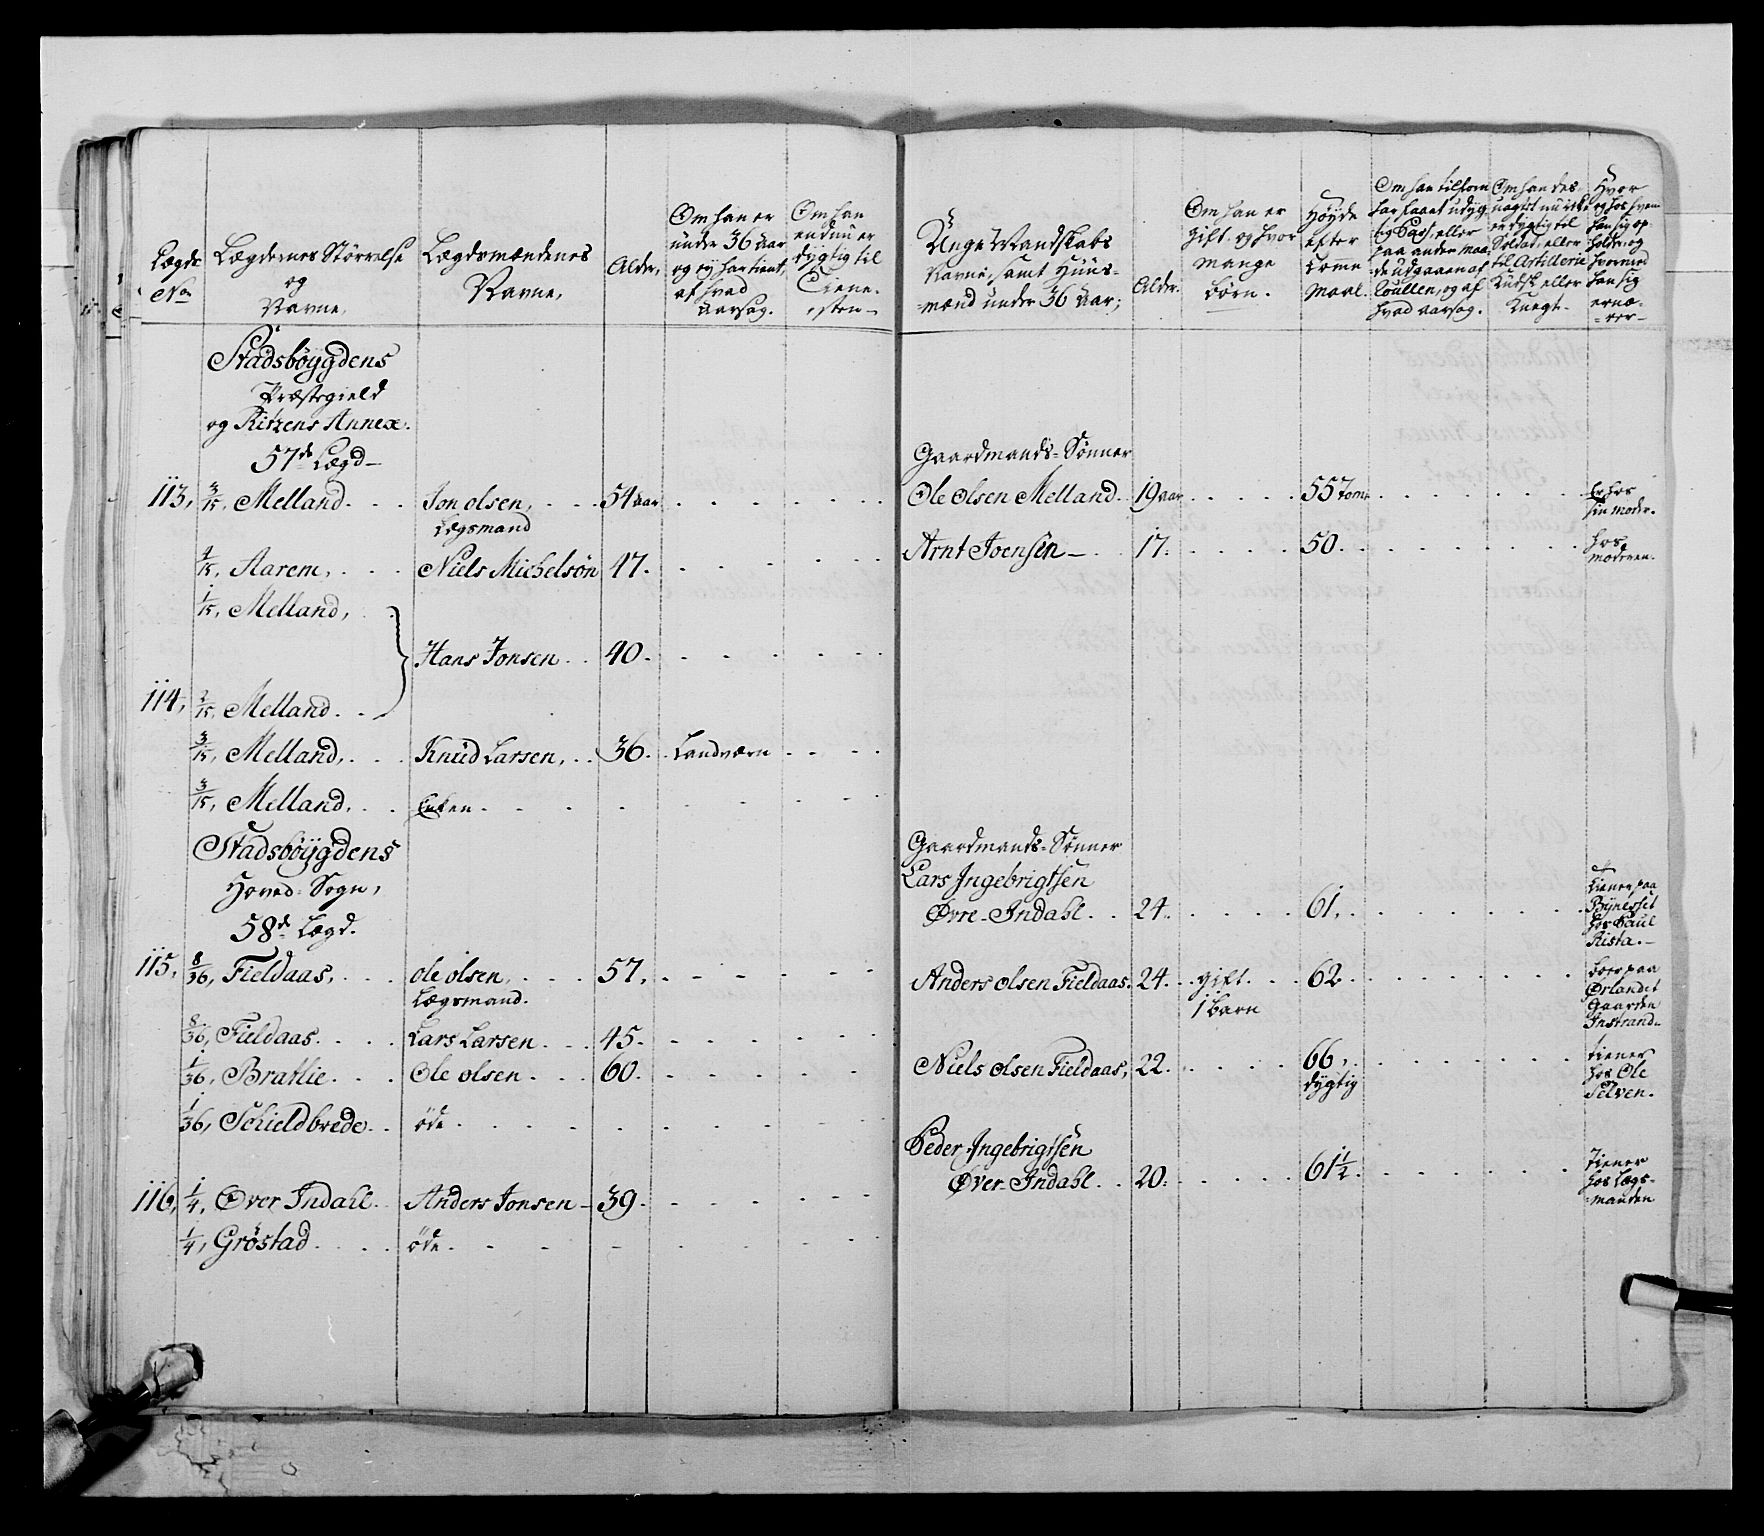 Lægde
No
Lægdernes Störrelse
og
Navne,
Lægdsmændenes
Navne,
Alder,
Om han er
under 36 aar
og ey har tient,
af hvad
aarsag.
Om han
endnu er
dygtig til
Tiene-
sten
Unge Mandskabs
Navne, samt Huus-
mænd under 36 aar;
Alder.
Om han er
gift, og hvor
mange
börn.
Höyde
efter
Tomme
Maal.
Om han tilforn
har faaet udyg-
tig Pass, eller
paa anden maa-
de udgaaen af
Roullen, og af
hvad aarsag.
Om han des-
uagtet nu icke
er dygtig til
Soldat, eller
til Artillerie
Kudsk eller
Knegt.
Hvor
og hos hvem
han sig op-
holder, og
hvormed
han sig
ernæ-
rer
Stadsböygdens
Præstegield
og Ritzens Annex.
57de Lægd
Gaardmands-Sönner
113, 3/15, Melland. Jon olsen, 54 aar
Lægsmand
Ole Olsen Melland. 19 aar 55 Tom. Er hos
sin Moder.
4/15, Aarem, Niels Michelsön 47.
Arnt Joensen 17. 50. hos
moderen.
1/15, Melland,
Hans Jonsen 40.
114, 2/15, Melland.
3/15, Melland, Knud Larsen, 36. Landværn
3/15, Melland, Enken.
Stadsböygdens
Hoved-Sogn,
58de Lægd.
Gaardmands-Sönner
Lars Ingebrigtsen
Øvre-Indahl 24. 61.
tiener paa
Bynesset
hos Paul
Rista.
115, 8/36, Fieldaas, ole olsen, 57.
Lægsmand.
Anders olsen Fieldaas. 24. gift 62.
1 barn
boer paa
Ørlandet
Gaarden
Instrand.
8/36, Fieldaas. Lars Larsen 45.
1/36, Bratlie. Ole olsen 60.
Niels olsen Fieldaas, 22. 66.
dygtig
tiener
hos Ole
Selven.
1/36, Schieldbrede. öde.
Peder Ingebrigtsen
Øver-Indahl 20. 61 1/2.
tiener
hos Lægs-
manden
116, 1/4, Over Indahl. Anders Jonsen 39.
1/4, Gröstad. öde.